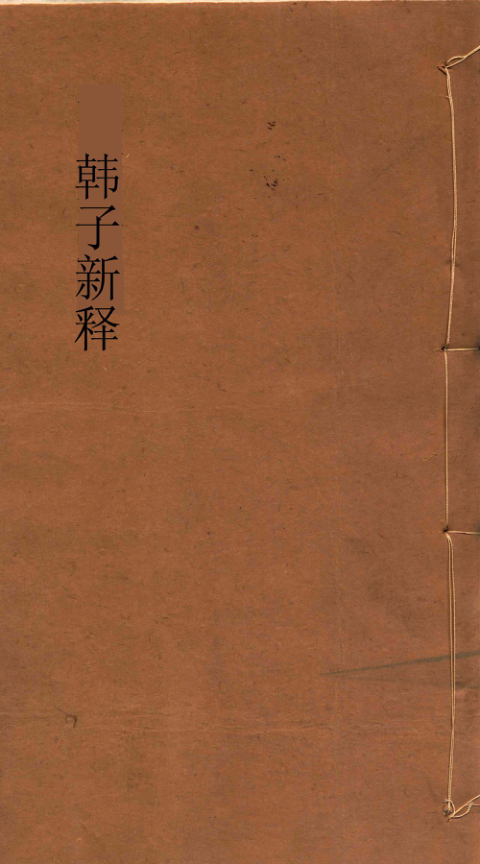 韩子新释